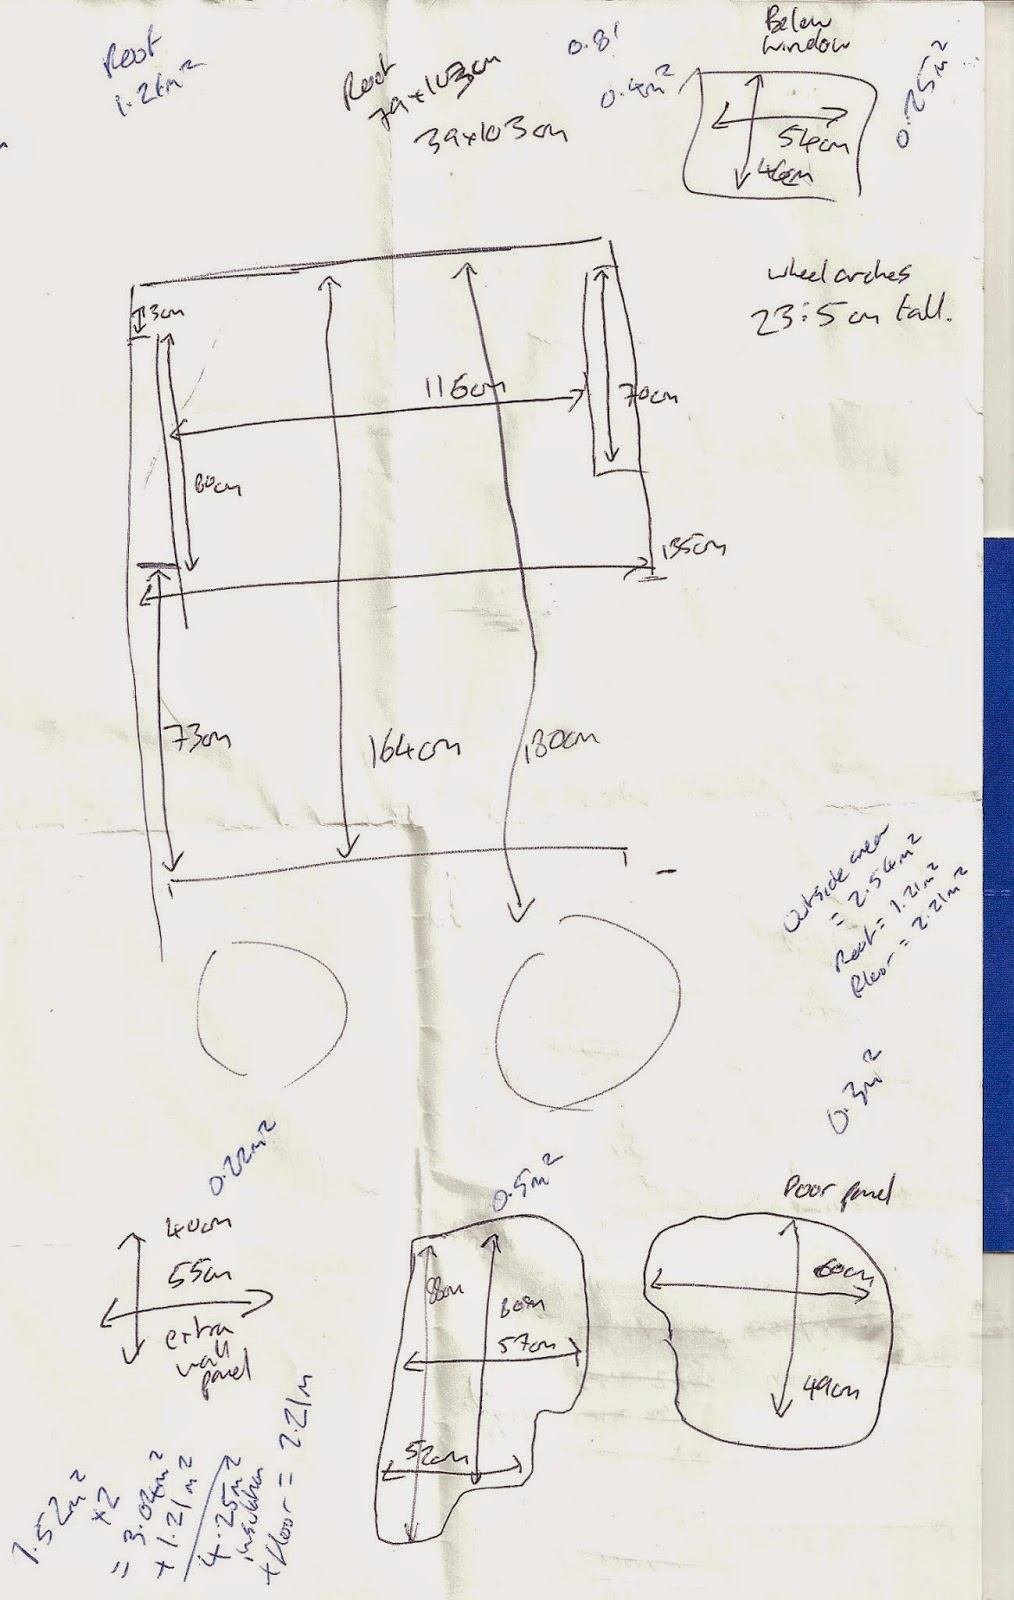 Roof
1.21m²
Roof
79x103cm
39x103cm
0.81
0.4m²
Below
window
54cm
46cm
0.25m²
wheel arches
23.5cm tall.
13cm
116cm
70cm
80cm
135cm
73cm
164cm
180cm
Outside area
= 2.54m²
Roof = 1.21m²
Floor = 2.21m²
0.3m²
0.22m²
40cm
55cm
extra
wall
panel
0.5m²
88cm
80cm
57cm
52cm
Door panel
60cm
49cm
1.52m²
x2
= 3.04m²
+ 1.21m²
4.25m²
insulation
+ floor = 2.21m